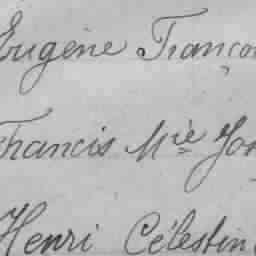 Eugène Françoi
Francis Mie Jos
Henri Célestin